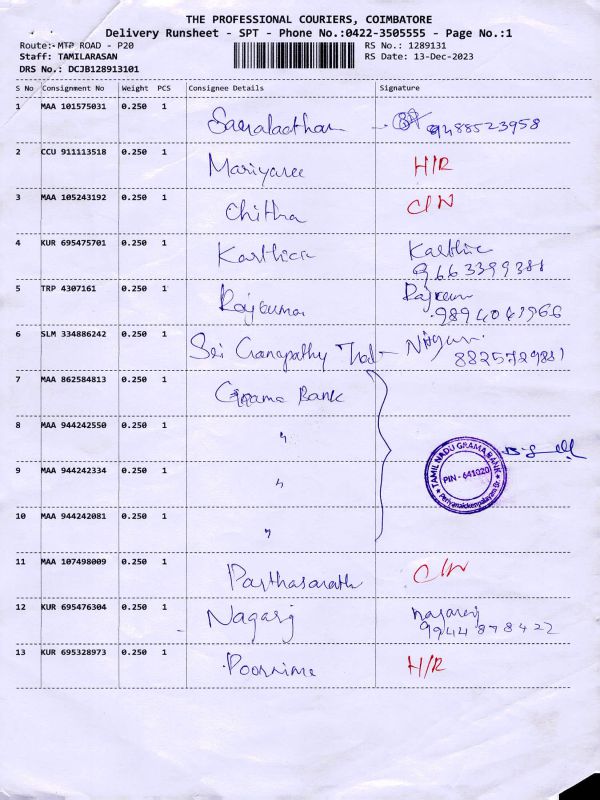 THE PROFESSIONAL COURIERS, COIMBATORE
Delivery Runsheet - SPT - Phone No.:0422-3505555 - Page No.:1
Route:- MTP ROAD - P20 RS No.: 1289131
Staff: TAMILARASAN RS Date: 13-Dec-2023
DRS No.: DCJB128913101
S No Consignment No Weight PCS Consignee Details Signature
1 MAA 101575031 0.250 1 9488523958
2 CCU 911113518 0.250 1 H/R
3 MAA 105243192 0.250 1 Chitha
4 KUR 695475701 0.250 1 Karthick Karthic
9663399388
5 TRP 4307161 0.250 1 Rajkumar
9894041966
6 SLM 334886242 0.250 1 Sri Ganapathy Trad-
8825729881
7 MAA 862584813 0.250 1 Grama Bank
8 MAA 944242550 0.250 1 "
TAMIL NADU GRAMA BANK
PIN - 641020
Periyanaickenpalayam Br
9 MAA 944242334 0.250 1 "
10 MAA 944242081 0.250 1 "
11 MAA 107498009 0.250 1 Parthasarath
12 KUR 695476304 0.250 1 Nagaraj nagaraj
9944878422
13 KUR 695328973 0.250 1 Poornima H/R